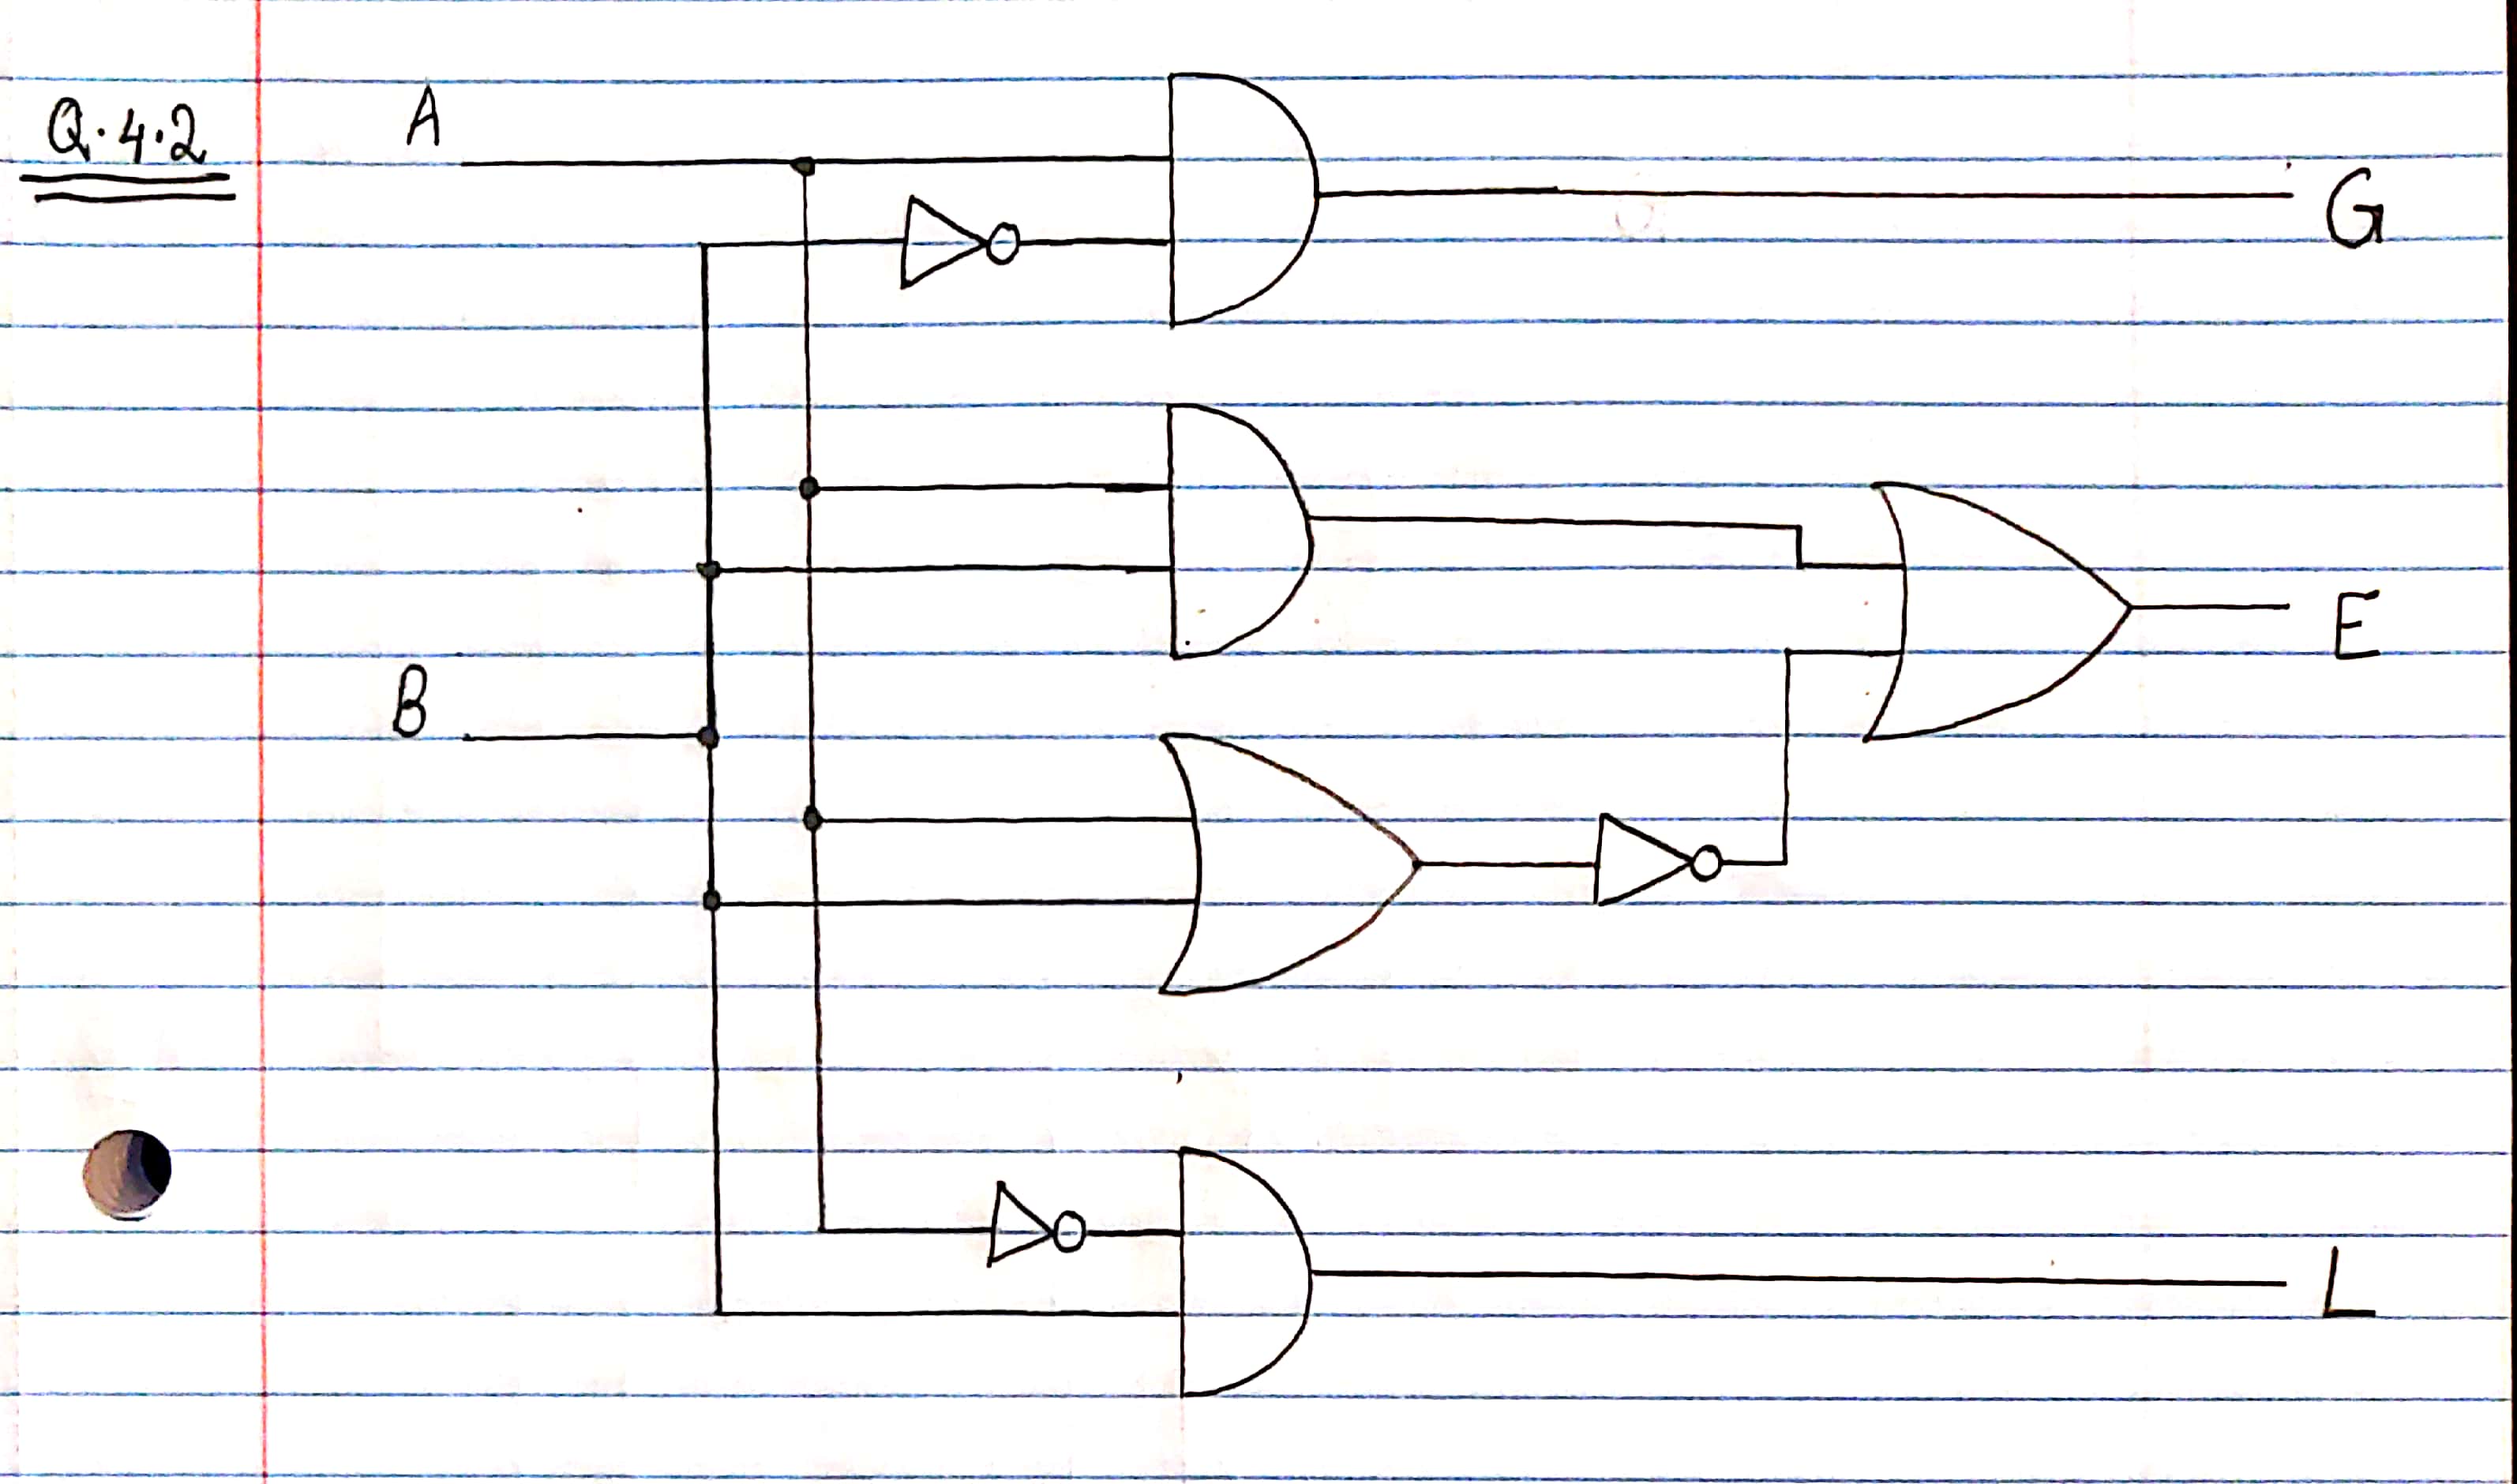 Q.4.2
A
G
E
B
L